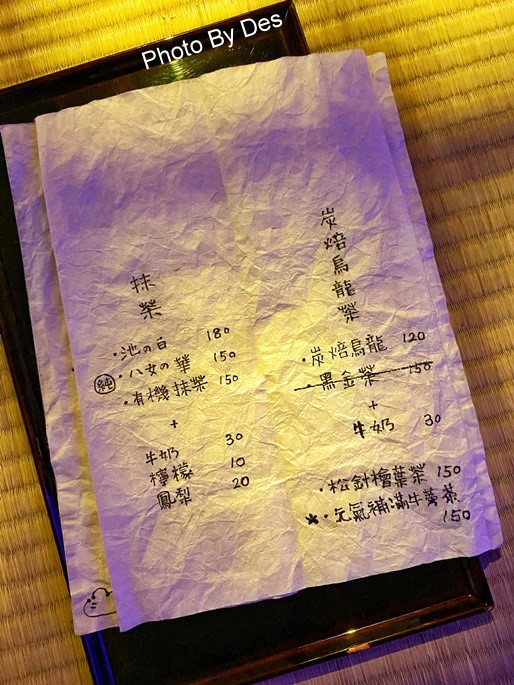 Photo By Des
炭焙烏龍茶
・炭焙烏龍 120
・黑金茶 150
+
牛奶 30
・松針檜葉茶 150
★・元氣補滿牛蒡茶
150
抹茶
・池の白 180
純・八女の華 150
・有機抹茶 150
+
牛奶 30
檸檬 10
鳳梨 20